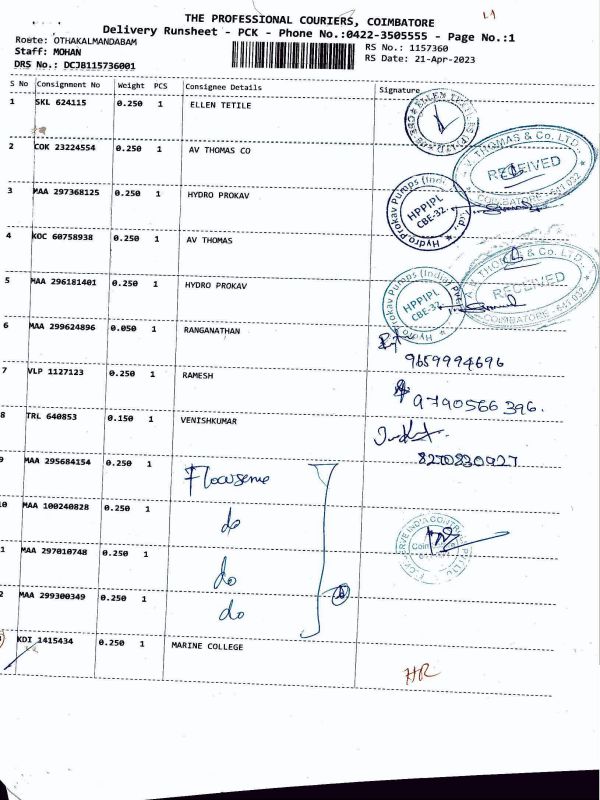 THE PROFESSIONAL COURIERS, COIMBATORE
Delivery Runsheet - PCK - Phone No.:0422-3505555 - Page No.:1
Route: OTHAKALMANDABAM
Staff: MOHAN
DRS No.: DCJB115736001
RS No.: 1157360
RS Date: 21-Apr-2023
S No Consignment No Weight PCS Consignee Details Signature
1 SKL 624115 0.250 1 ELLEN TETILE
2 COK 23224554 0.250 1 AV THOMAS CO
3 MAA 297368125 0.250 1 HYDRO PROKAV
4 KOC 60758938 0.250 1 AV THOMAS
5 MAA 296181401 0.250 1 HYDRO PROKAV
6 MAA 299624896 0.050 1 RANGANATHAN
9659994696
7 VLP 1127123 0.250 1 RAMESH
9790566396.
8 TRL 640853 0.150 1 VENISHKUMAR
8270830927
9 MAA 295684154 0.250 1 Flowserve
0 MAA 100240828 0.250 1 do
1 MAA 297010748 0.250 1 do
2 MAA 299300349 0.250 1 do
KDI 1415434 0.250 1 MARINE COLLEGE
HR
THOMAS & Co. LTD.,
RECEIVED
COIMBATORE - 641 032
Hydro Prokav Pumps (India)
HPPIPL
CBE-32.
THOMAS & Co. LTD.,
RECEIVED
COIMBATORE - 641 032
Hydro Prokav Pumps (India) Pvt
HPPIPL
CBE-32.